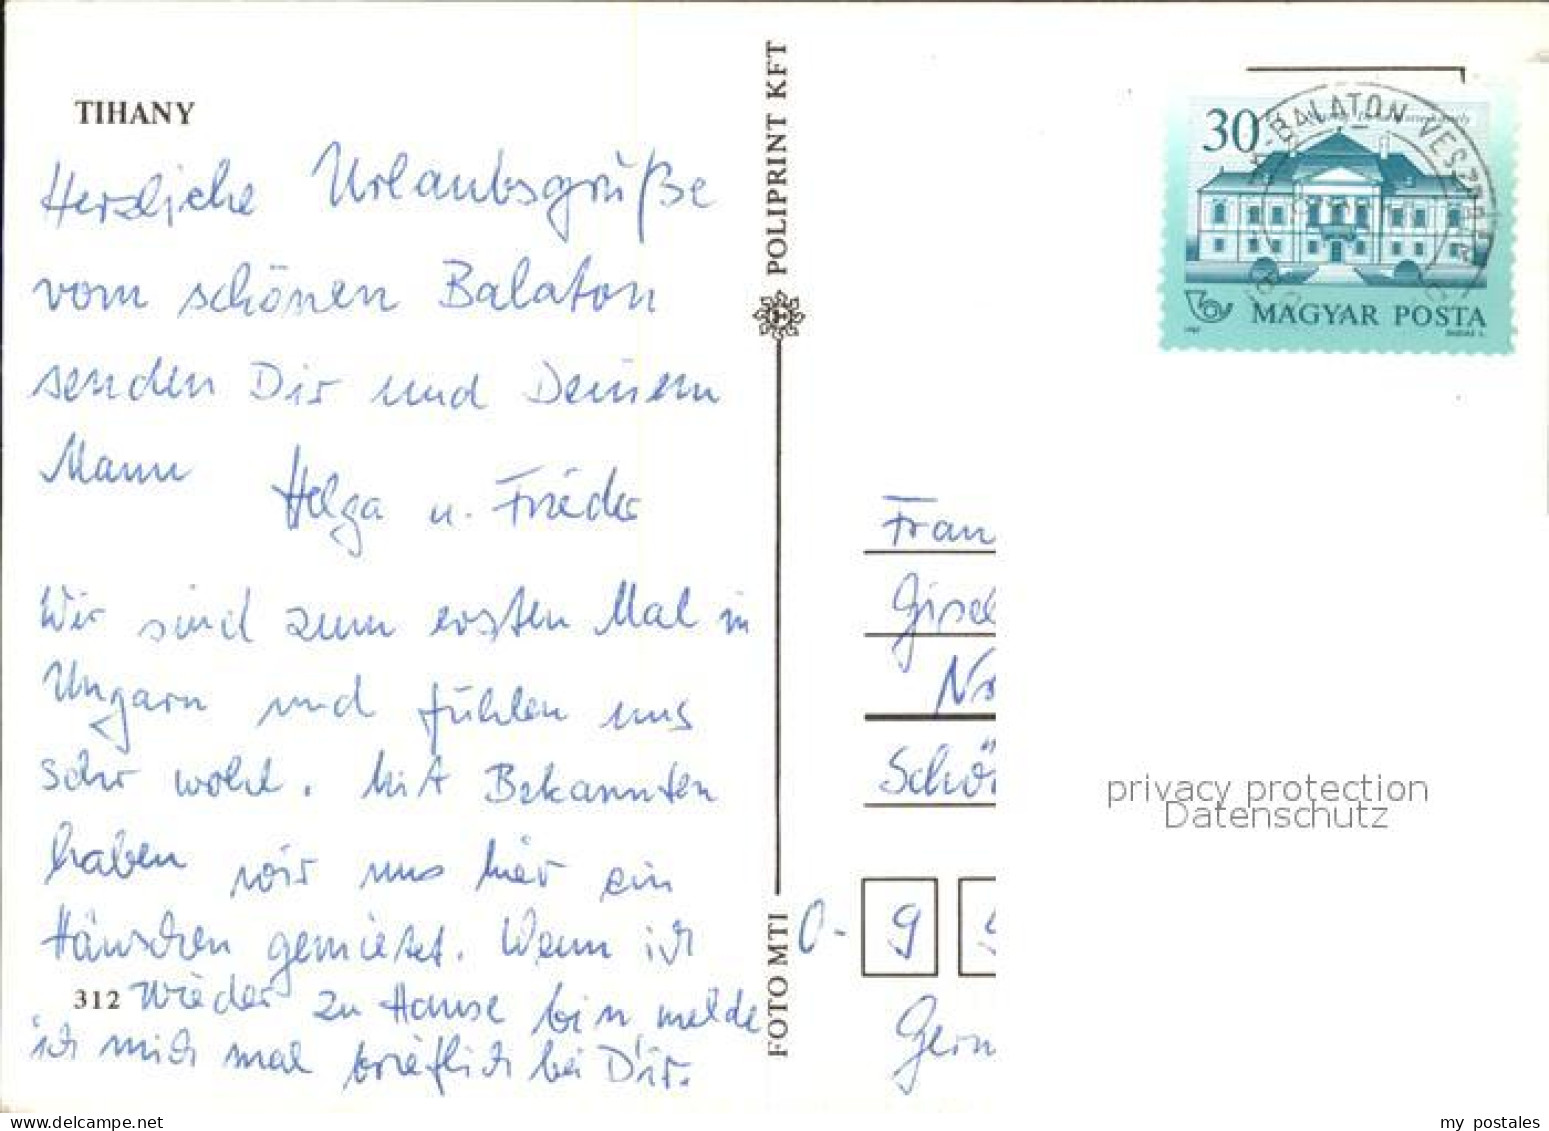 TIHANY
Herzliche Urlaubsgrüße
vom schönen Balaton
senden Dir und Deinem
Mann Helga u. Frieder
Wir sind zum ersten Mal in
Ungarn und fühlen uns
sehr wohl. Mit Bekannten
haben wir uns hier ein
Häuschen gemietet. Wenn ich
312 wieder zu Hause bin, melde
ich mich mal brieflich bei Dir.
POLIPRINT KFT
FOTO MTI
30
BALATON VESZPRÉM
MAGYAR POSTA
Frau
Gisel
Schö
O - 9
Germ
privacy protection
Datenschutz
delcampe.net
my_postales